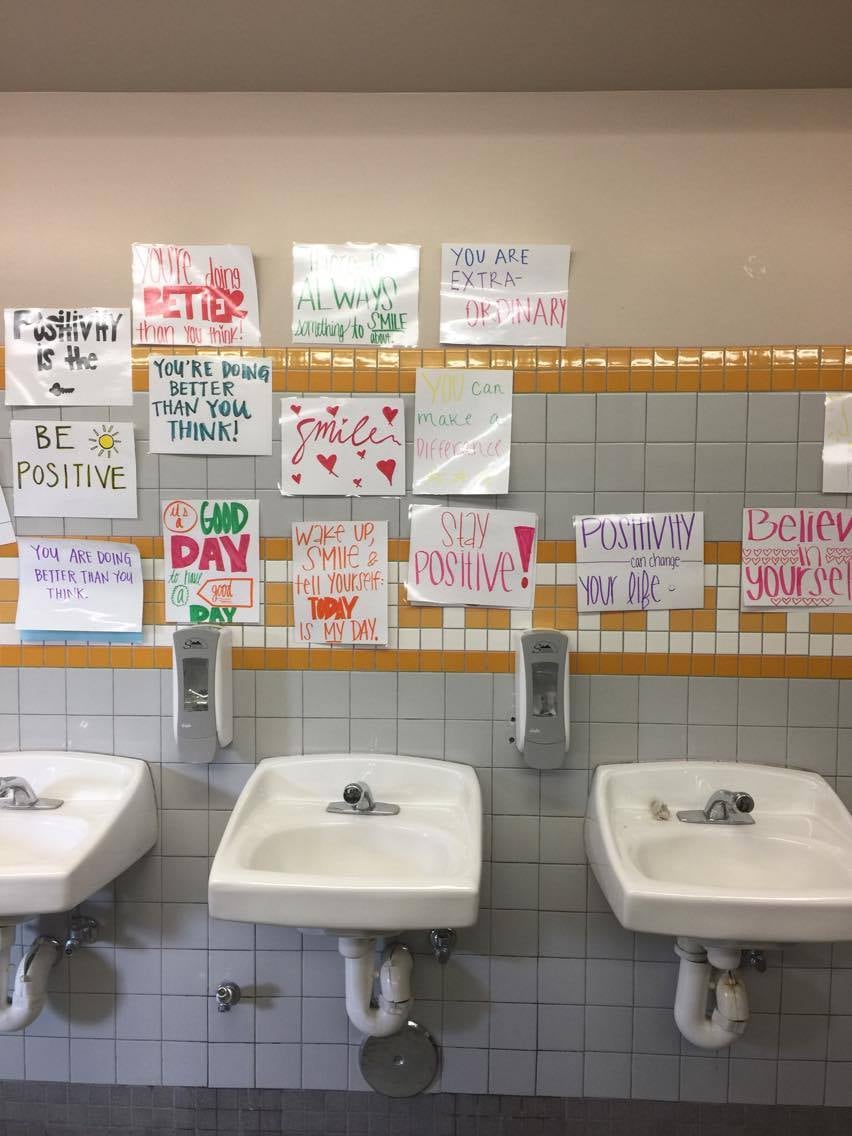 YOU'RE doing
BETTER
than you think!
THERE IS
ALWAYS
something to SMILE
about.
YOU ARE
EXTRA-
ORDINARY
POSitiViTY
is the
YOU'RE DOING
BETTER
THAN YOU
THINK!
Smile
YOU can
make a
Difference
BE
POSITIVE
it's
a GOOD
DAY
to have
a good
DAY
WAKE UP,
SMILE &
tell YOURSELF:
TODAY
IS MY DAY.
Stay
POSITIVE!
POSITIVITY
can change
YOUR life
Believ
in
yoursel
YOU ARE DOING
BETTER THAN YOU
THINK.